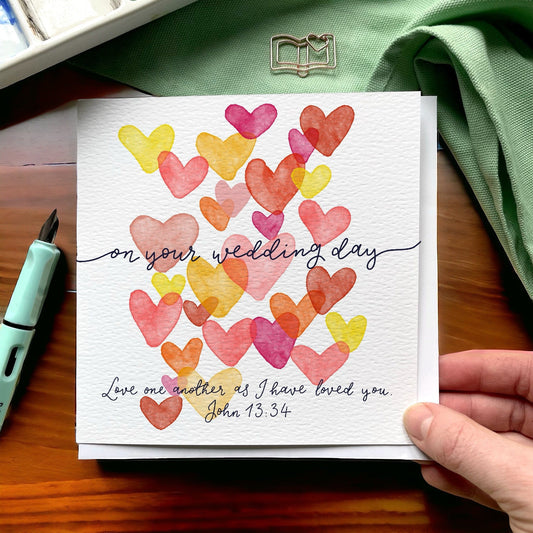 on your wedding day
Love one another as I have loved you.
John 13:34